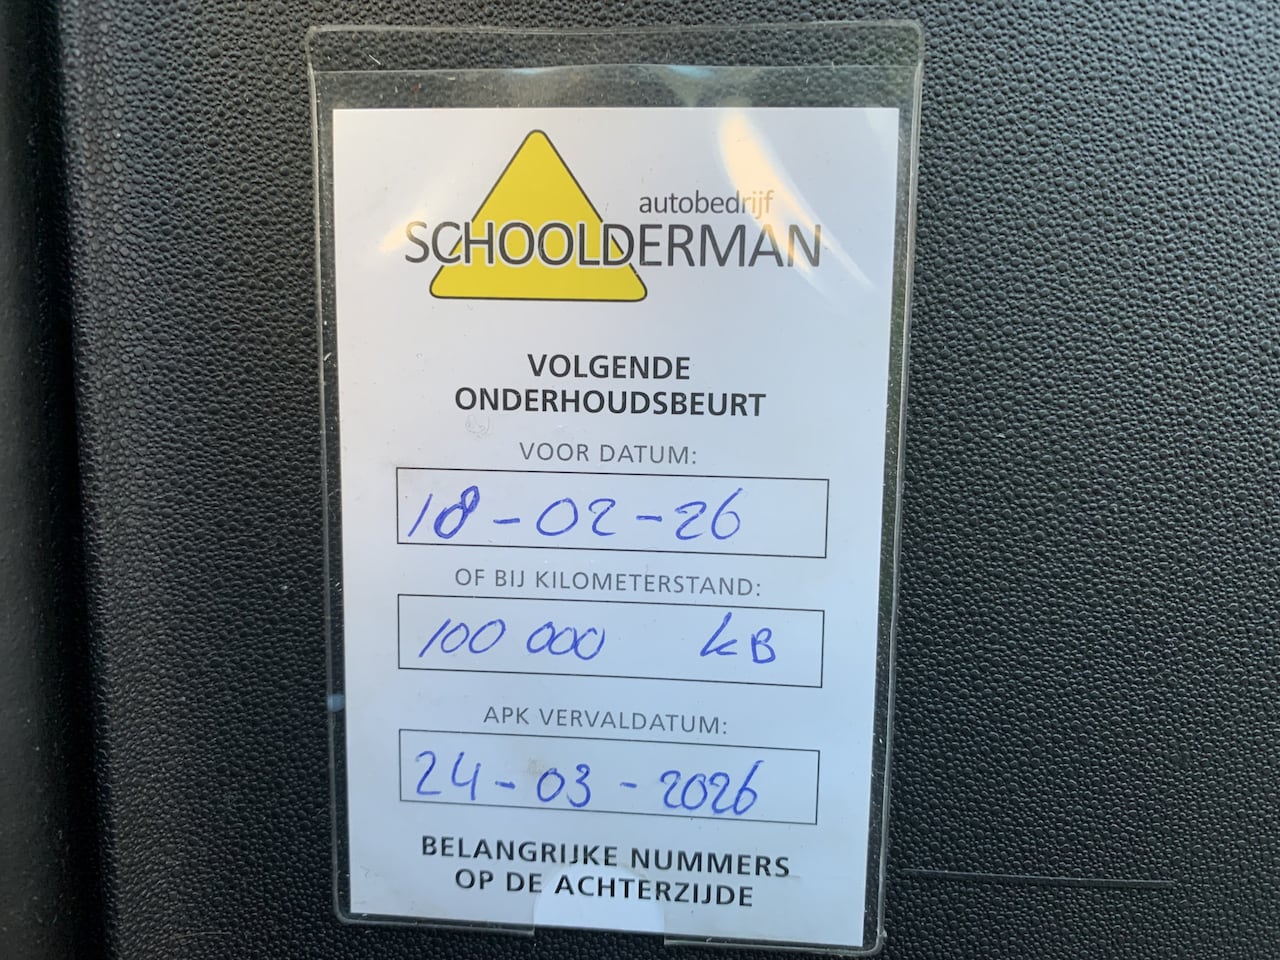 autobedrijf
SCHOOLDERMAN
VOLGENDE
ONDERHOUDSBEURT
VOOR DATUM:
18-02-26
OF BIJ KILOMETERSTAND:
100 000 KB
APK VERVALDATUM:
24-03-2026
BELANGRIJKE NUMMERS
OP DE ACHTERZIJDE